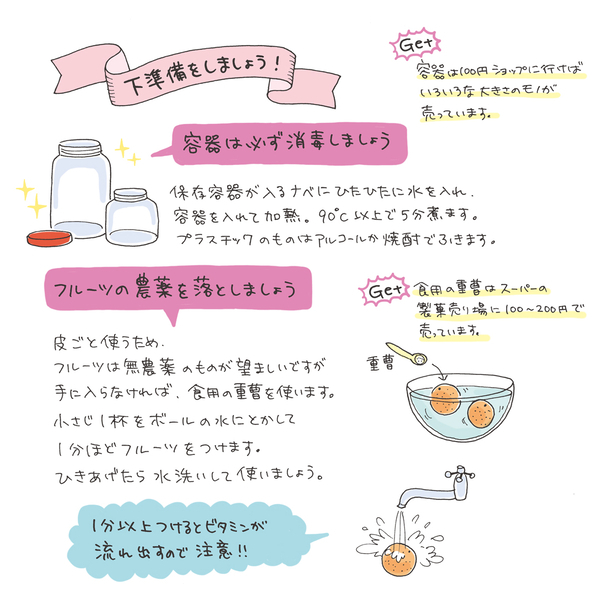 下準備をしましょう!
Get
容器は100円ショップに行けば
いろいろな大きさのモノが
売っています。
容器は必ず消毒しましょう
保存容器が入るナベにひたひたに水を入れ、
容器を入れて加熱。90℃以上で5分煮ます。
プラスチックのものはアルコールか焼酎でふきます。
フルーツの農薬を落としましょう
Get
食用の重曹はスーパーの
製菓売り場に100〜200円で
売っています。
皮ごと使うため、
フルーツは無農薬のものが望ましいですが
手に入らなければ、食用の重曹を使います。
小さじ1杯をボールの水にとかして
1分ほどフルーツをつけます。
ひきあげたら水洗いして使いましょう。
重曹
1分以上つけるとビタミンが
流れ出すので注意!!